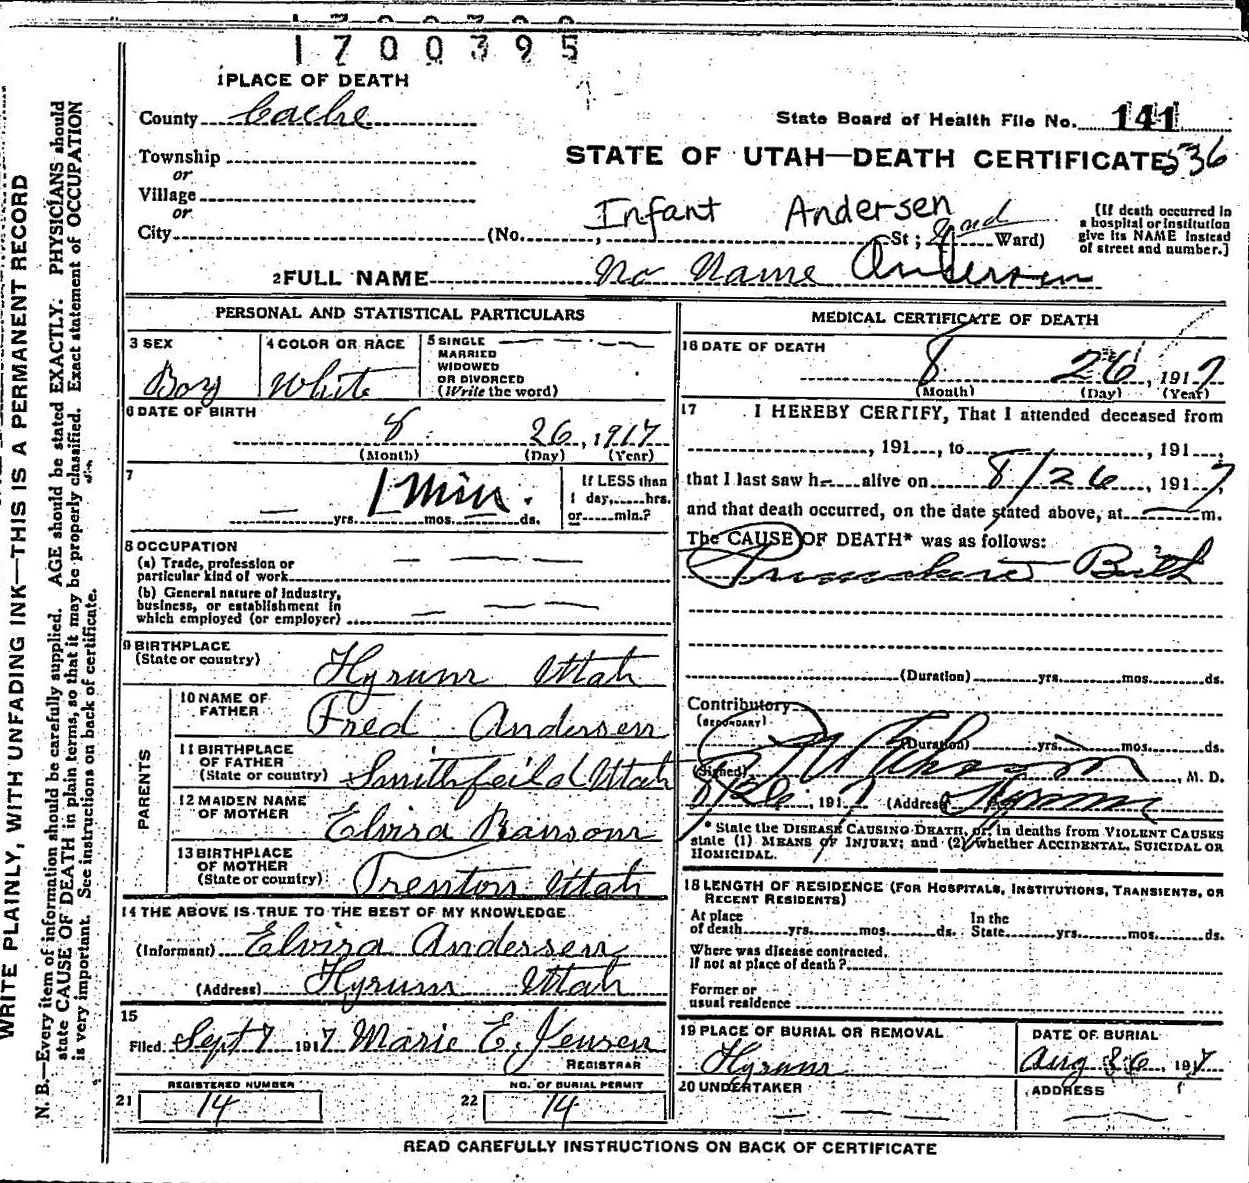 1700395
1 PLACE OF DEATH
County Cache
State Board of Health File No. 141
Township
or
STATE OF UTAH—DEATH CERTIFICATE 536
Village
or
Infant Andersen
City (No. , St; 2nd Ward)
[If death occurred in a hospital or institution give its NAME instead of street and number.]
2 FULL NAME No Name Andersen
PERSONAL AND STATISTICAL PARTICULARS
3 SEX
Boy
4 COLOR OR RACE
White
5 SINGLE
MARRIED
WIDOWED
OR DIVORCED
(Write the word)
6 DATE OF BIRTH
8 26, 1917
(Month) (Day) (Year)
7
1 Min.
yrs. mos. ds.
If LESS than
1 day, hrs.
or min.?
8 OCCUPATION
(a) Trade, profession or
particular kind of work
(b) General nature of industry,
business, or establishment in
which employed (or employer)
9 BIRTHPLACE
(State or country) Hyrum Utah
PARENTS
10 NAME OF
FATHER Fred Andersen
11 BIRTHPLACE
OF FATHER
(State or country) Smithfeild Utah
12 MAIDEN NAME
OF MOTHER Elvira Ransom
13 BIRTHPLACE
OF MOTHER
(State or country) Trenton Utah
14 THE ABOVE IS TRUE TO THE BEST OF MY KNOWLEDGE
(Informant) Elvira Andersen
(Address) Hyrum Utah
15
Filed Sept 7 1917 Marie E. Jensen
REGISTRAR
REGISTERED NUMBER
21 14
NO. OF BURIAL PERMIT
22 14
MEDICAL CERTIFICATE OF DEATH
16 DATE OF DEATH
8 26, 1917
(Month) (Day) (Year)
17 I HEREBY CERTIFY, That I attended deceased from
, 191 , to , 191 ,
that I last saw h alive on 8/26, 1917,
and that death occurred, on the date stated above, at m.
The CAUSE OF DEATH* was as follows:
Premature Birth
(Duration) yrs. mos. ds.
Contributory
(SECONDARY)
(Duration) yrs. mos. ds.
(Signed) , M. D.
8/26, 1917 (Address) Hyrum
* State the DISEASE CAUSING DEATH, or, in deaths from VIOLENT CAUSES
state (1) MEANS OF INJURY; and (2) whether ACCIDENTAL, SUICIDAL OR
HOMICIDAL.
18 LENGTH OF RESIDENCE (FOR HOSPITALS, INSTITUTIONS, TRANSIENTS, OR
RECENT RESIDENTS)
At place
of death yrs. mos. ds.
In the
State yrs. mos. ds.
Where was disease contracted,
If not at place of death?
Former or
usual residence
19 PLACE OF BURIAL OR REMOVAL
Hyrum
DATE OF BURIAL
Aug 26, 1917
20 UNDERTAKER
ADDRESS
READ CAREFULLY INSTRUCTIONS ON BACK OF CERTIFICATE
WRITE PLAINLY, WITH UNFADING INK—THIS IS A PERMANENT RECORD
N. B.—Every item of information should be carefully supplied. AGE should be stated EXACTLY. PHYSICIANS should
state CAUSE OF DEATH in plain terms, so that it may be properly classified. Exact statement of OCCUPATION
is very important. See instructions on back of certificate.